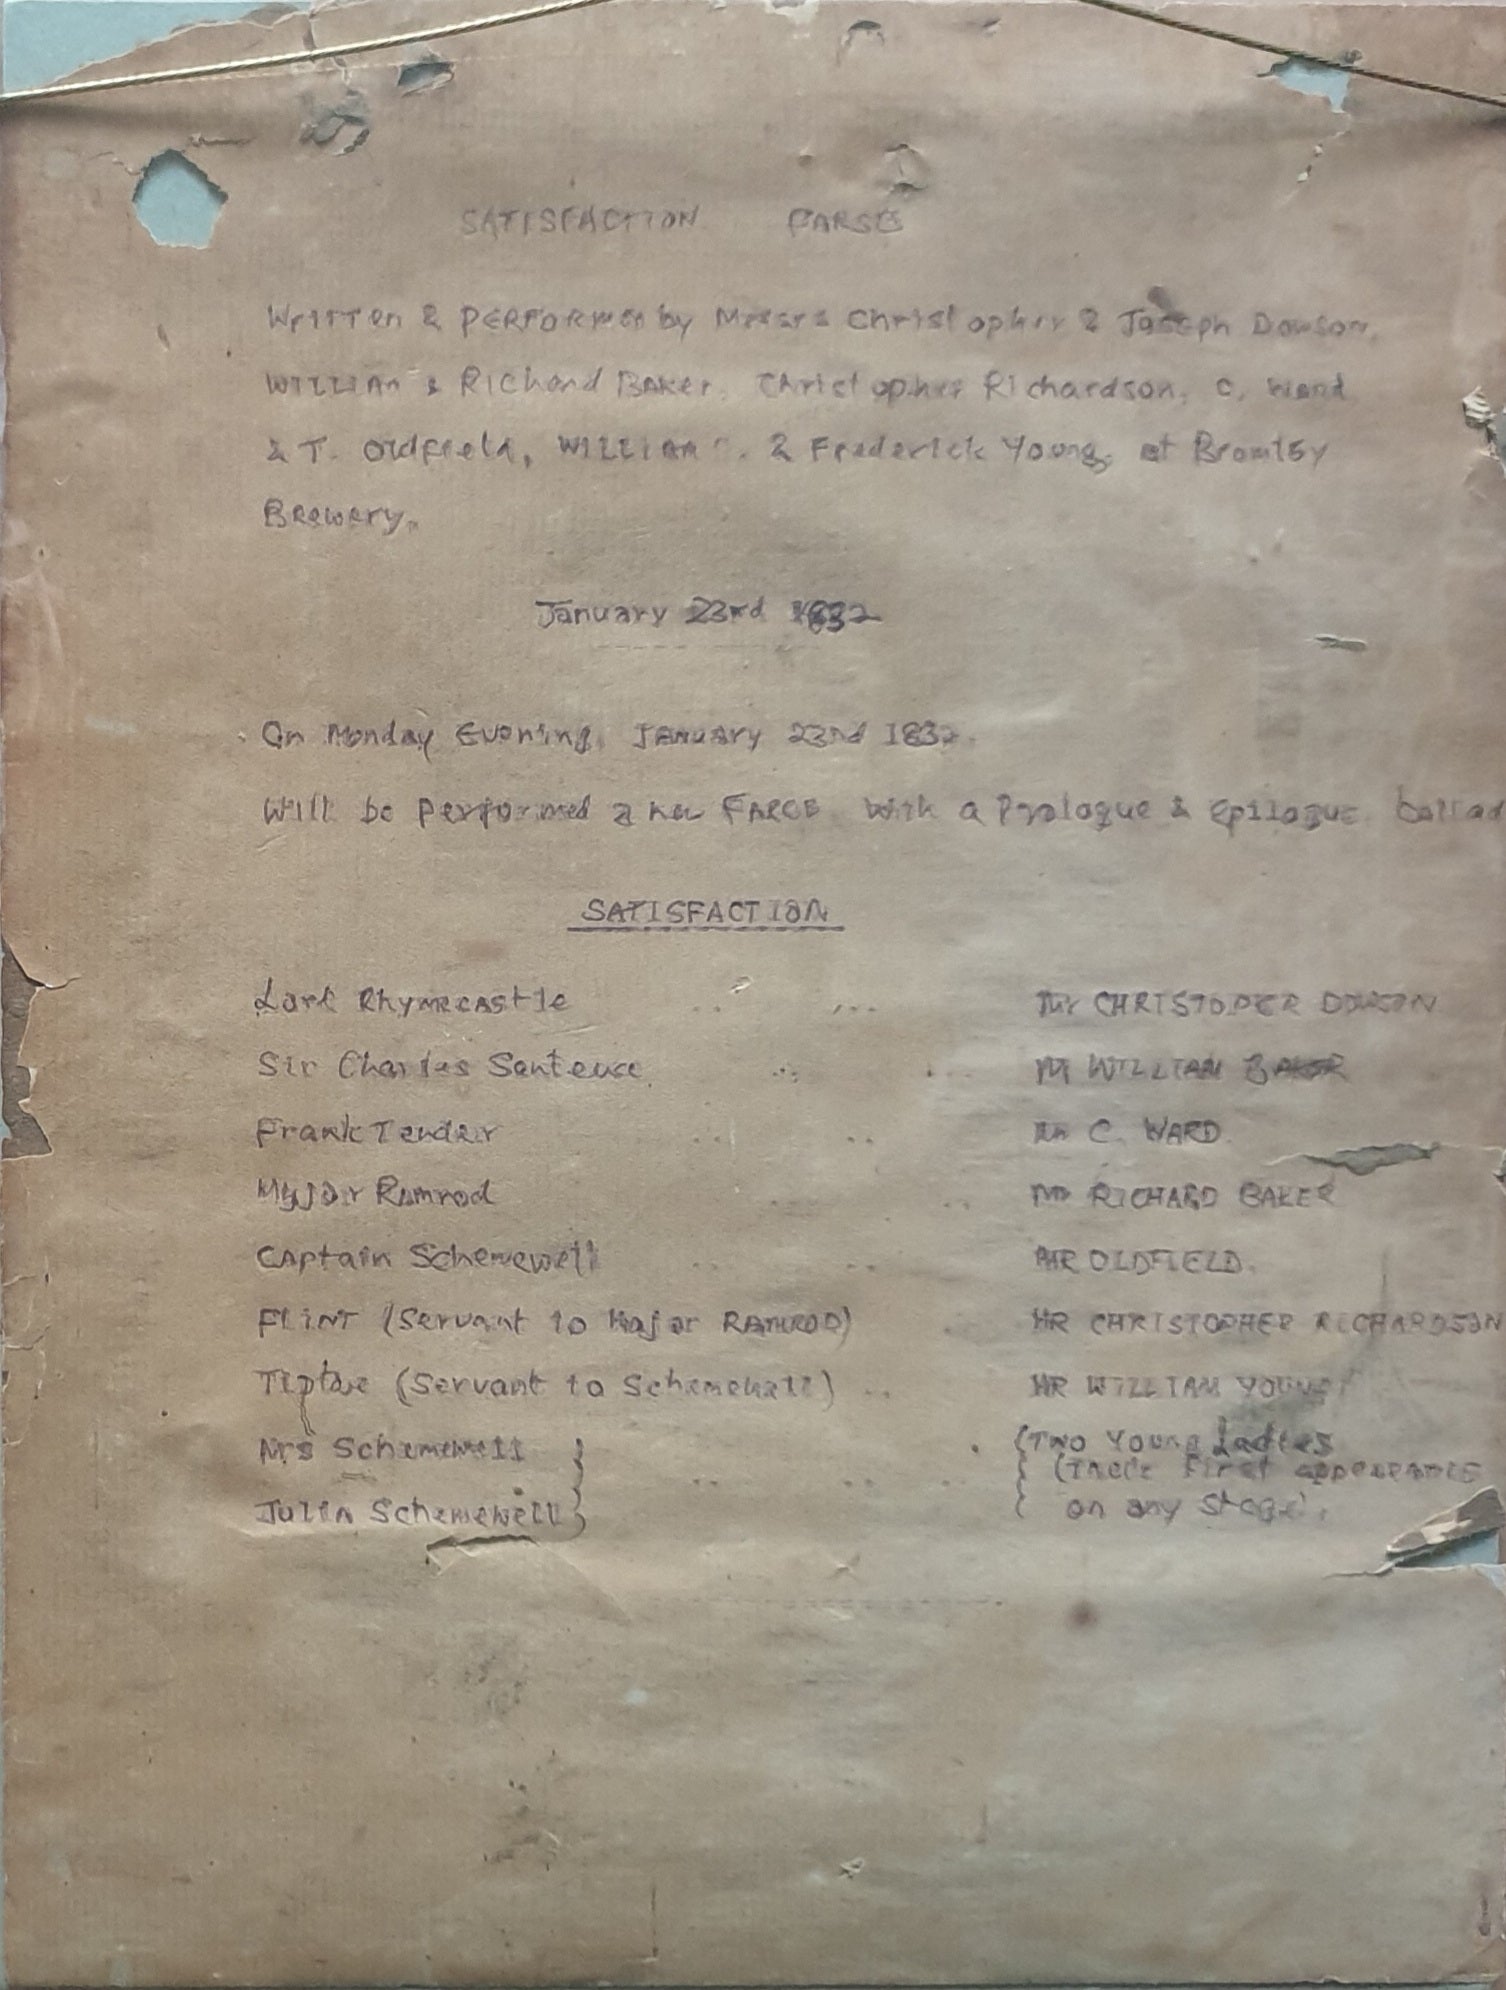 SATISFACTION FARSE
Written & PERFORMED by Messrs Christopher & Joseph Dowson,
WILLIAM & RIChard BAKer, Christopher Richardson, C. Ward
& T. Oldfield, WILLIAM & Frederick Young, at Bromley
Brewery.
January 23rd 1832
On Monday Evening, January 23rd 1832.
Will be performed a new FARCE with a Prologue & Epilogue ballad
SATISFACTION
Lord Rhymecastle .. ... Mr CHRISTOPER DOWSON
Sir Charles Sentence .. .. Mr WILLIAM BAKER
Frank Tender .. .. Mr C. WARD
Major Ramrod .. .. Mr RICHARD BAKER
Captain Schemewell .. .. MR OLDFIELD.
FLINT (Servant to Major RAMROD) . MR CHRISTOPHER RICHARDSON
(Servant to Schemewell) .. MR WILLIAM YOUNG
Mrs Schemewell } . (Two Young Ladies
Julia Schemewell } .. .. .. (Their First appearance
on any stage).